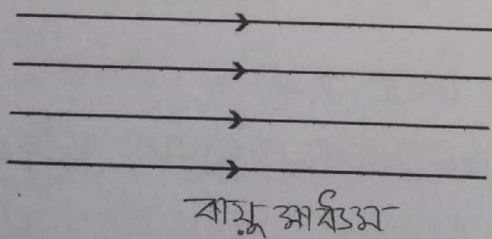 বায়ু মাধ্যম